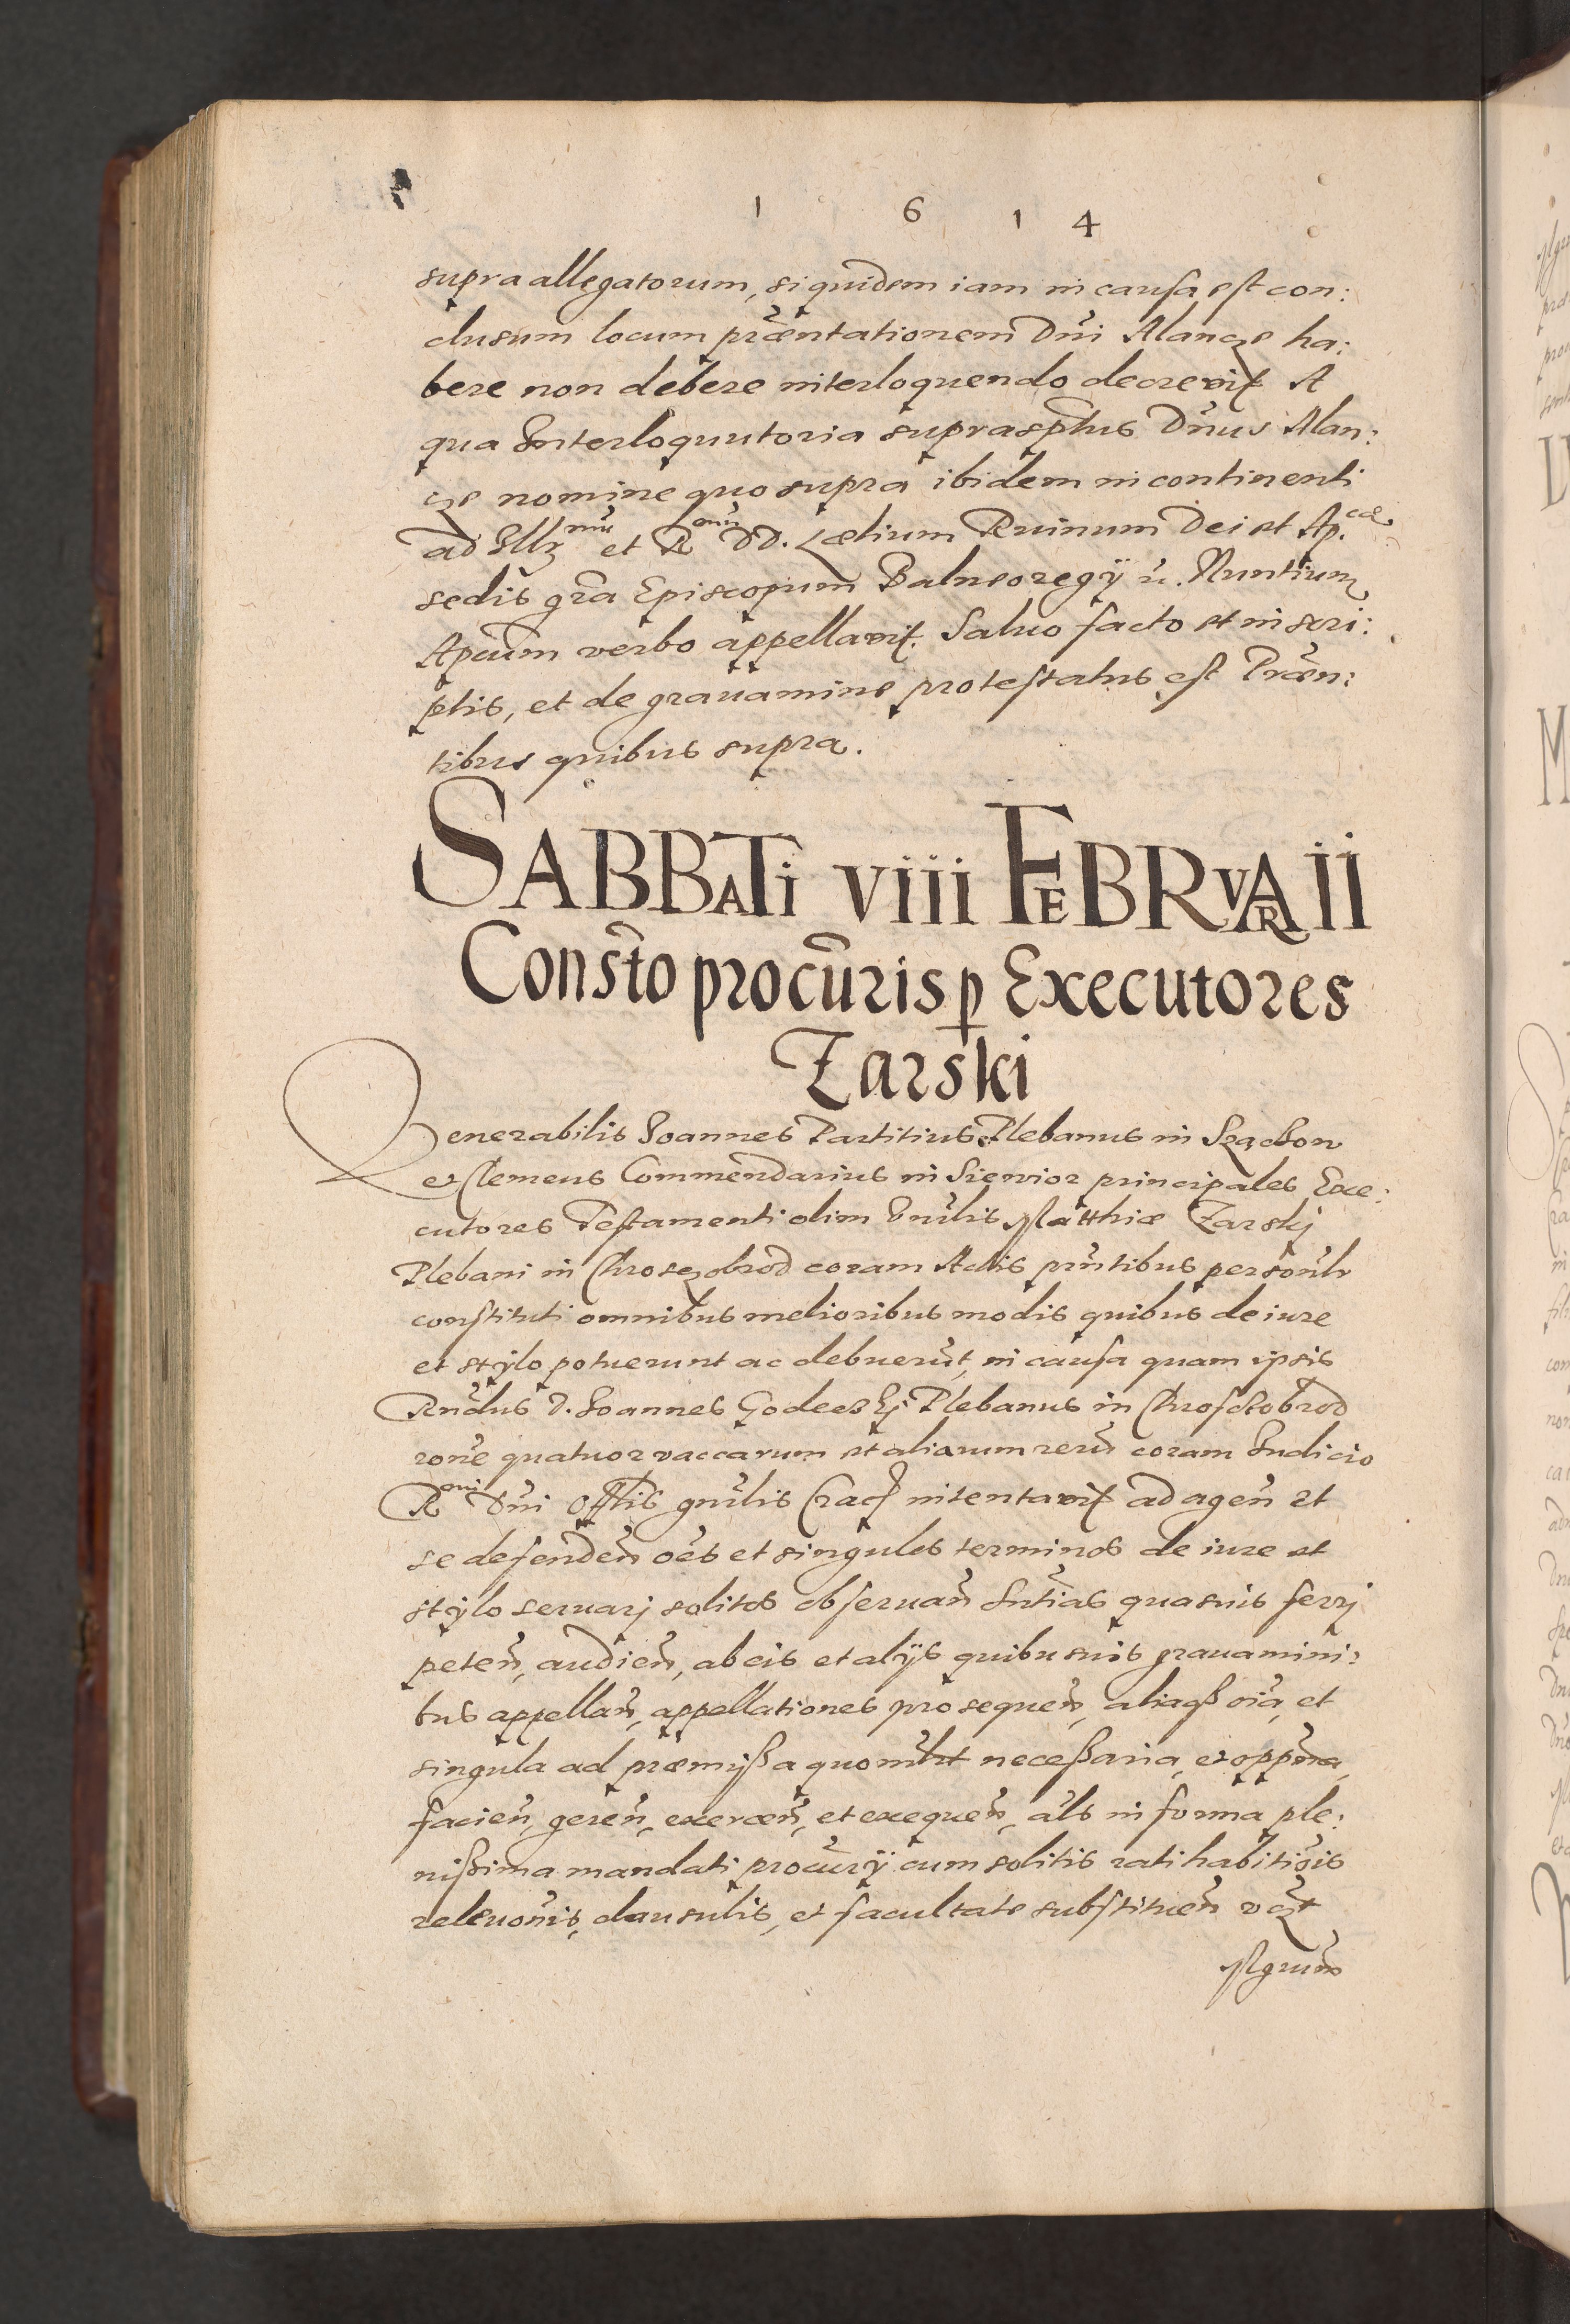 1614
supra allegatorum, siquidem iam in causa est con:
clusum locum præntationem Dni Alancze ha:
bere non debere interloquendo decrevit A
qua Interloquutoria suprascptus Dnus Alan:
cze nomine quo supra ibidem in continenti
ad Illr mu et R mu DD. Lælium Ruinum Dei et Ap. cæ
sedis gra Episcopum Balneoregÿ n. Nuntium
Apcum verbo appellavit. Saluo facto et in scri:
ptis, et de grauamine protestatus est Præn:
tibus quibus supra.
SABBATi viii FEBRVARII
Consto procuris p Executores
Zarski
Venerabilis Ioannes Partitius Plebanus in
et Clemens Commendarius in Siewior principales Exe:
cutores Testamenti olim Vnlis Matthiæ Zarskj
Plebani in Chroszobrod coram Actis pntibus personlr
constituti omnibus melioribus modis quibus de iure
et stylo potuerunt ac debuerut, in causa quam ipsis
Rndus D. Ioannes Plebanus in Chroscobrod
rone quatuor vaccarum et aliarum reru coram Iudicio
R mi Dni Offtis gnlis Crac intentavit ad agen et
se defenden oes et singulos terminos de iure et
stylo seruarj solitos obseruan Sntias quasuis ferrj
peten, audien, ab eis et alÿs quibusuis grauamini:
bus appellan, appellationes prosequen, aliaqß oia, et
singula ad præmißa quomlt neceßaria, et oppna,
facien, geren, exercen, et exequen, als in forma ple:
nißima mandati procurÿ cum solitis ratihabitiois
releuonis, clausulis, et facultate substituen vczt
Mgrum